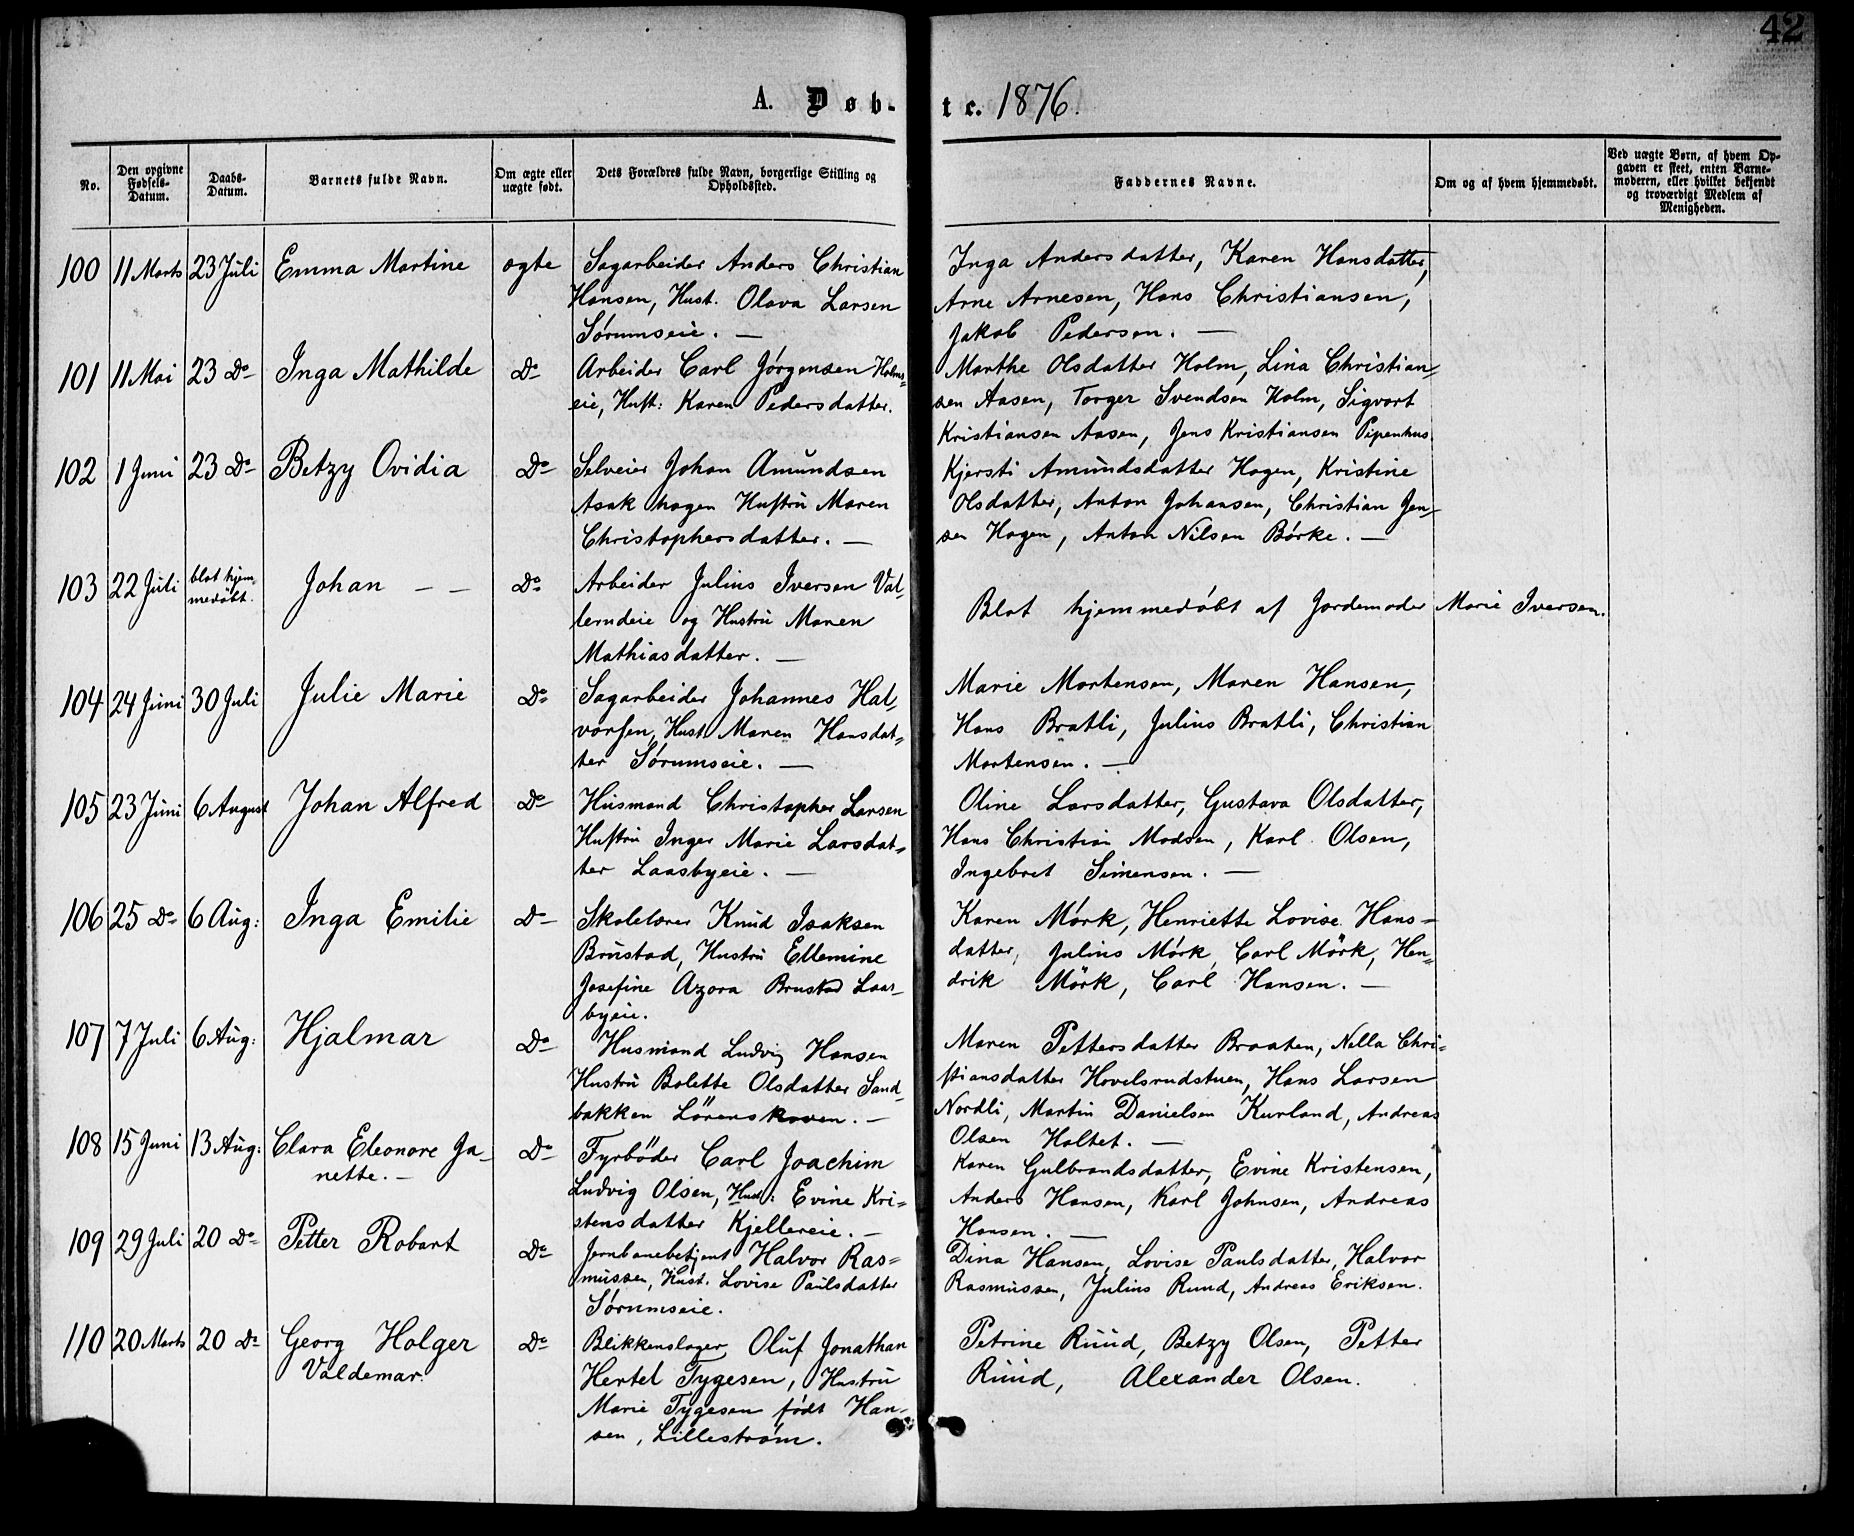 42
A. Døb-
t c. 1876.
No.
Den opgivne Fødsels-Datum.
Daabs-Datum.
Barnets fulde Navn.
Om ægte eller uægte født.
Dets Forældres fulde Navn, borgerlige Stilling og Opholdssted.
Faddernes Navne.
Om og af hvem hjemmedøbt.
Ved uægte Børn, af hvem Op-
gaven er skeet, enten Barne-
moderen, eller hvilket bekjendt
og troværdigt Medlem af
Menigheden.
100 11 Marts 23 Juli Emma Martine ægte
Sagarbeider Anders Christian
Hansen, Hust. Olava Larsen
Sørumseie. —
Inga Andersdatter, Karen Hansdatter,
Arne Arnesen, Hans Christiansen,
Jakob Pedersen. —
101 11 Mai 23 Do Inga Mathilde Do
Arbeider Carl Jørgensen Holms=
eie, Hust: Karen Pedersdatter.
Marthe Olsdatter Holm, Lina Christian-
sen Aasen, Torger Svendsen Holm, Sigvart
Kristiansen Aasen, Jens Kristiansen Pipenhus
102 1 Juni 23 Do Betzy Ovidia Do
Selveier Johan Amundsen
Asak hagen Hustru Maren
Christophersdatter. —
Kjersti Amundsdatter Hagen, Kristine
Olsdatter, Anton Johansen, Christian Jen-
sen Hagen, Anton Nilsen Børke. —
103 22 Juli blot hjem-
medøbt. Johan — — Do
Arbeider Julius Iversen Val-
lerudeie og Hustru Maren
Mathiasdatter. —
Blot hjemmedøbt af Jordemoder Marie Iversen.
104 24 Juni 30 Juli Julie Marie Do
Sagarbeider Johannes Hal-
vorsen, Hust. Maren Hansdat=
ter Sørumseie. —
Marie Mortensen, Maren Hansen,
Hans Bratli, Julius Bratli, Christian
Mortensen. —
105 23 Juni 6 August Johan Alfred Do
Husmand Christopher Larsen
Hustru Inger Marie Larsdat=
ter Laasbyeie. —
Oline Larsdatter, Gustava Olsdatter,
Hans Christian Madsen, Karl Olsen,
Ingebret Simensen. —
106 25 Do 6 Aug: Inga Emilie Do
Skolelærer Knud Isaksen
Brustad, Hustru Ellemine
Josefine Azora Brustad Laas-
byeie.
Karen Mørk, Henriette Lovise Hans-
datter, Julius Mørk, Carl Mørk, Hen=
drik Mørk, Carl Hansen. —
107 7 Juli 6 Aug: Hjalmar Do
Husmand Ludvig Hansen
Hustru Bolette Olsdatter Sand-
bakken Lörenskoven. —
Maren Pettersdatter Braaten, Nella Chri=
stiansdatter Hovelsrudstuen, Hans Larsen
Nordli, Martin Danielsen Kurland, Andreas
Olsen Holtet. —
108 15 Juni 13 Aug: Clara Eleonore Ja-
nette. — Do
Fyrbøder Carl Joachim
Ludvig Olsen, Hust: Evine Kri=
stensdatter Kjellereie. —
Karen Gulbrandsdatter, Evine Kristensen,
Anders Hansen, Karl Johnsen, Andreas
Hansen. —
109 29 Juli 20 Do Petter Robart Do
Jernbanebetjent Halvor Ras=
mussen, Hust. Lovise Paulsdatter
Sørumseie.
Dina Hansen, Lovise Paulsdatter, Halvor
Rasmussen, Julius Ruud, Andreas Eriksen.
110 20 Marts 20 Do Georg Holger
Valdemar. Do
Blikkenslager Oluf Jonathan
Hertel Tygesen, Hustru
Marie Tygesen født Han-
sen, Lillestrøm.
Petrine Ruud, Betzy Olsen, Petter
Ruud, Alexander Olsen.